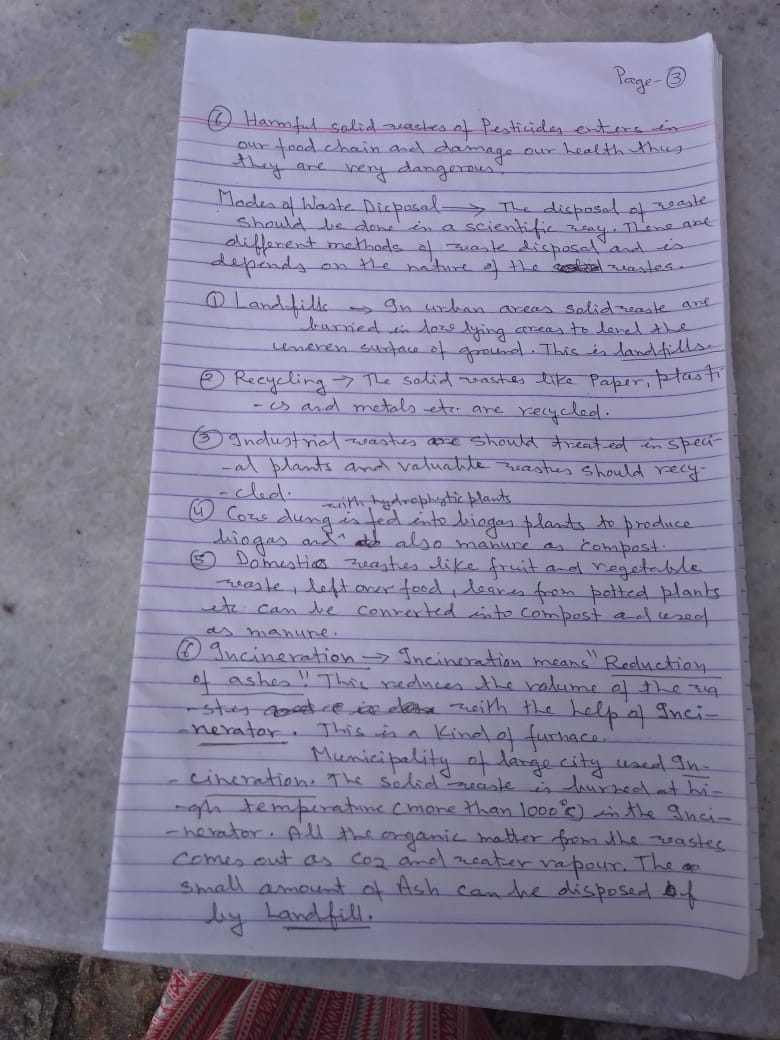 Page-③
⑥ Harmful solid wastes of Pesticides enters in
our food chain and damage our health thus
they are very dangerous.
Modes of Waste Disposal → The disposal of waste
should be done in a scientific way. There are
different methods of waste disposal and is
depends on the nature of the wastes.
① Landfills → In urban areas solid waste are
burried in low lying areas to level the
uneven surface of ground. This is landfills.
② Recycling → The solid wastes like Paper, plasti
-cs and metals etc. are recycled.
③ Industrial wastes should treated in speci-
-al plants and valuable wastes should recy-
-cled.
with hydrophytic plants
④ Cow dung is fed into biogas plants to produce
biogas and^ also manure as compost.
⑤ Domestic wastes like fruit and vegetable
waste, left over food, leaves from potted plants
etc. can be converted into compost and used
as manure.
⑥ Incineration → Incineration means "Reduction
of ashes". This reduces the volume of the wa
-stes with the help of Inci-
-nerator. This is a Kind of furnace.
Municipality of large city used In-
-cineration. The solid waste is burned at hi-
-gh temperature (more than 1000°c) in the Inci-
-nerator. All the organic matter from the wastes
comes out as CO2 and water vapour. The
small amount of Ash can be disposed of
by Landfill.